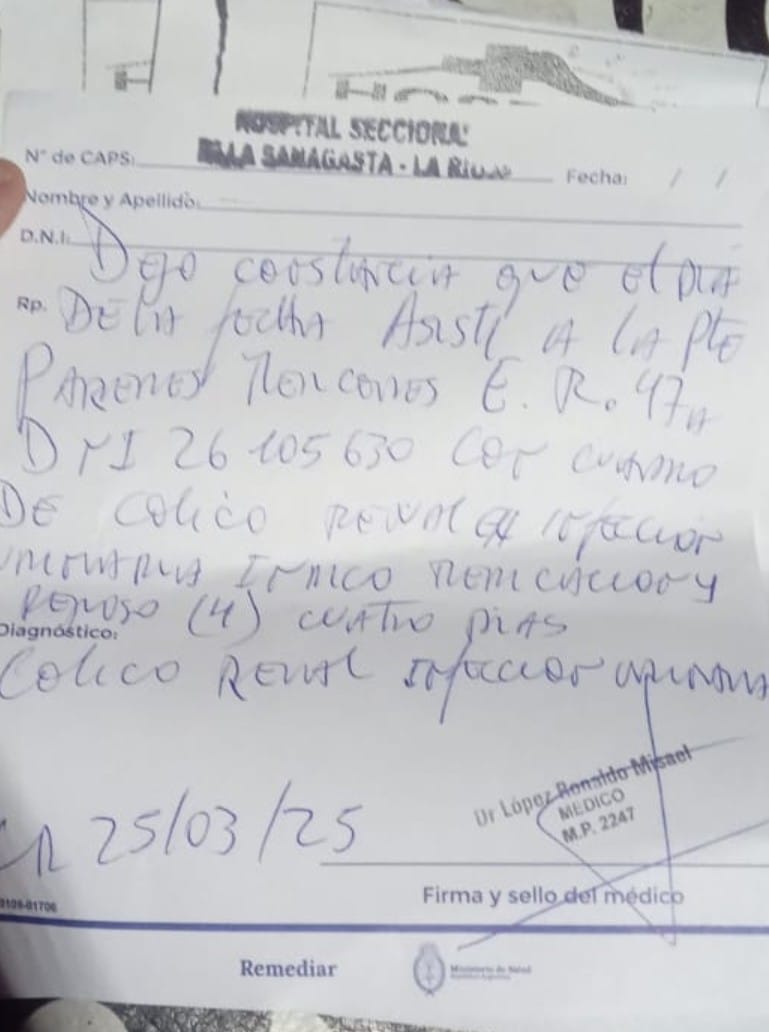 HOSPITAL SECCIONAL
VILLA SANAGASTA - LA RIOJA
N° de CAPS:
Fecha: / /
Nombre y Apellido:
D.N.I:
Dejo constancia que el dia
Rp. De la fecha Asisti A la Pte
E. R. 47a
DNI 26 105 630 con cuadro
De colico renal e infeccion
urinaria Indico medicacion y
reposo (4) cuatro dias
Diagnóstico:
Colico Renal Infeccion urinaria
LR 25/03/25
Dr López Ronaldo Misael
MEDICO
M.P. 2247
Firma y sello del médico
0109-01706
Remediar
Ministerio de Salud
República Argentina